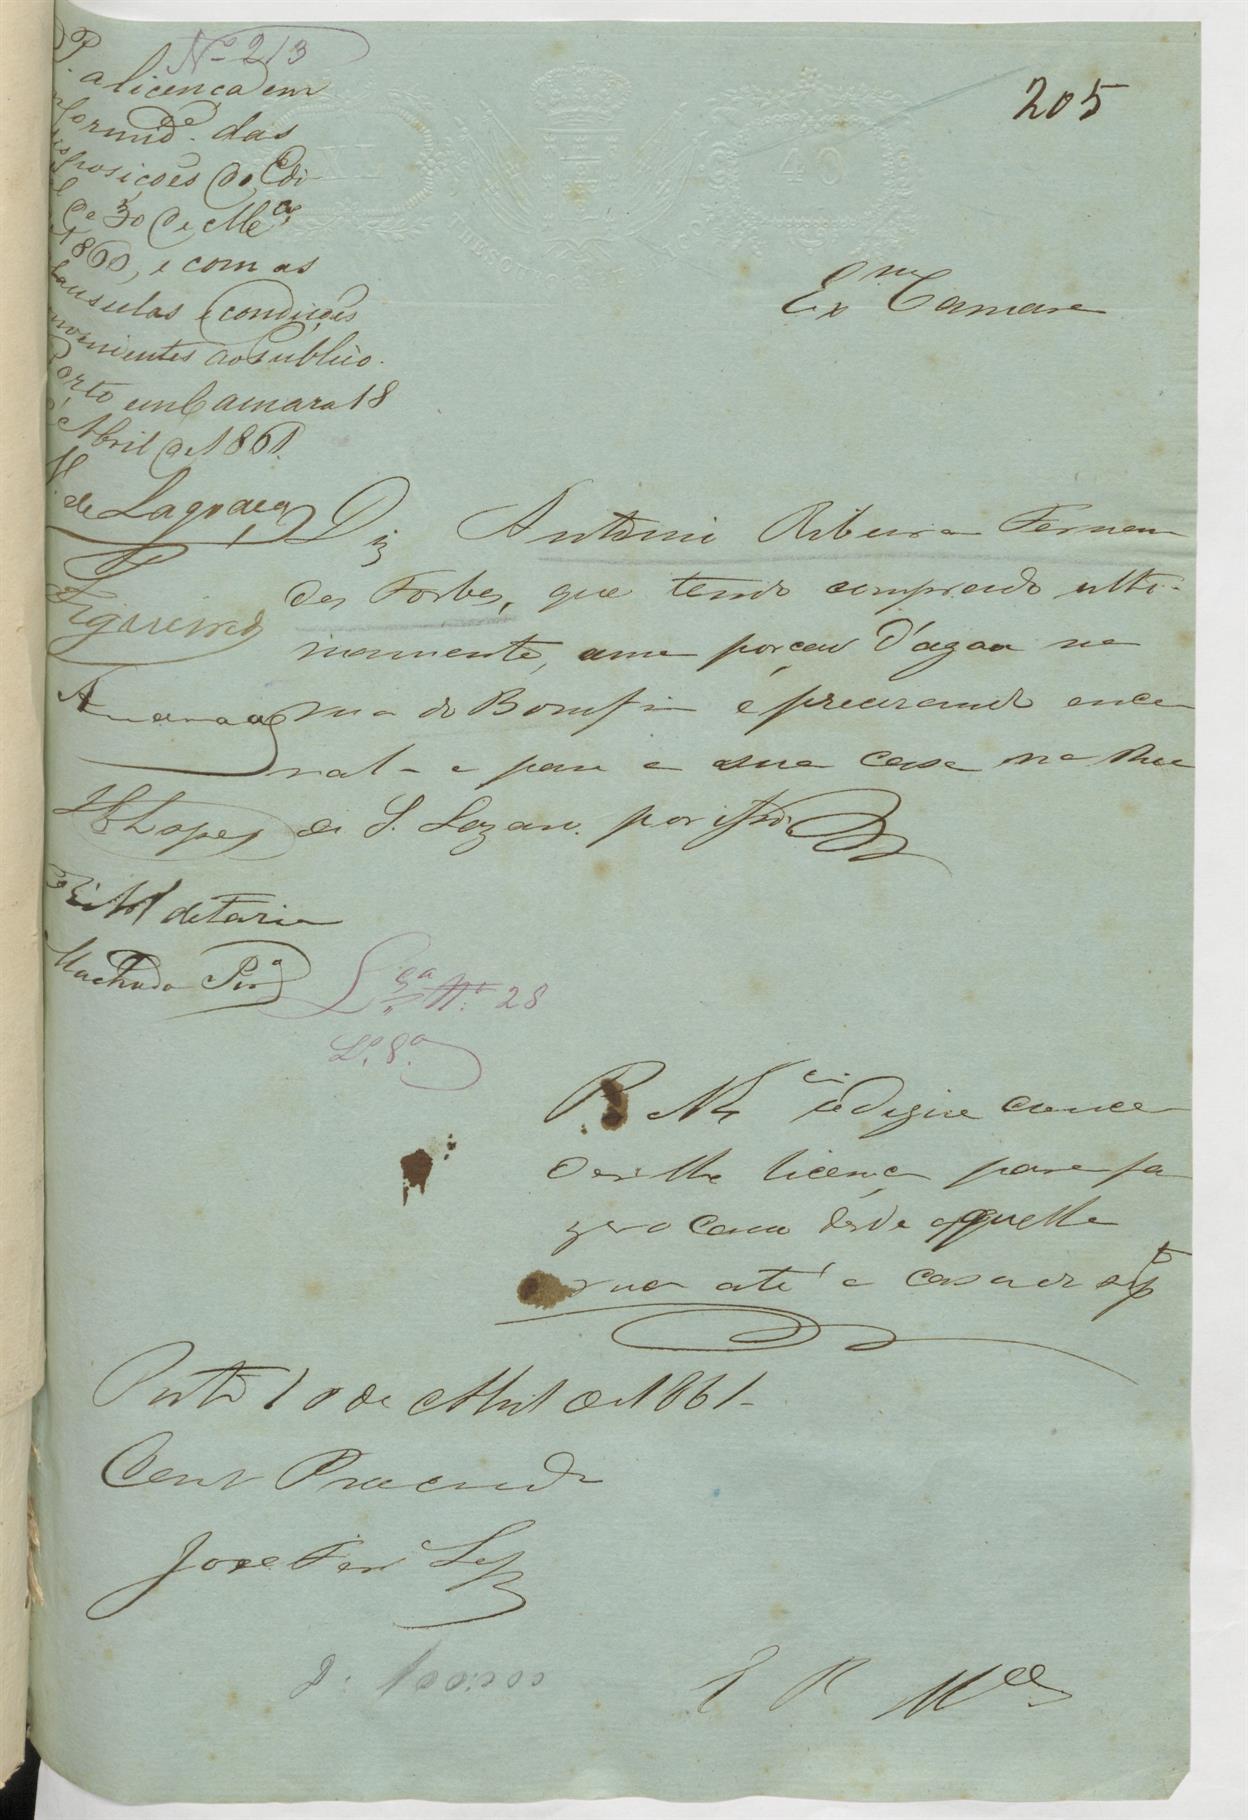 Nº 213
205
P. a licença em
conformid.e das
disposições do Edi-
tal de 30 de M.ço
1860, e com as
clausulas e condições
convenientes ao Publico.
Porto em Camara 18
d'Abril de 1861.
V. de Lagoaça
Figueiredo
Lopes
de Faria
Machado Per.a
XL
40
DESOITO
Ex.ma Camara
Diz Antonio Ribeiro Fernan
des Forbes, que tendo comprado ulti-
mamente, uma porção d'agoa na
rua do Bomfim e procurando enca
nal-a para a sua casa na Rua
de S. Lazaro. por isso
L.ça Nº 28
Lº 8º
P. a V. Ex.cia se digne conce
der-lhe licença para fa
zer o cano desde aquella
rua até a casa do sup.te
Porto 10 de Abril de 1861-
Como Procurador
José Fer.
E R M.ce